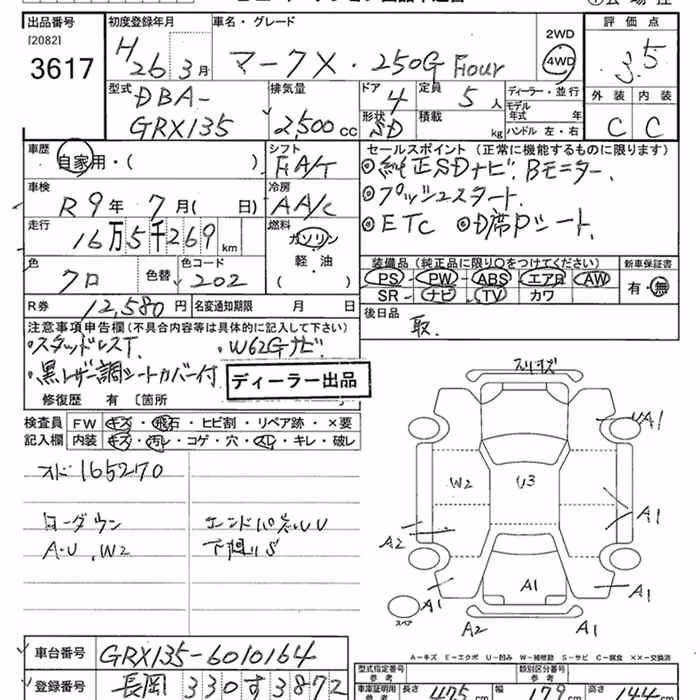 出品番号 初度登録年月 車名・グレード 評価点
[2082]
3617
H 26年 3月
マークX・250G Four
2WD
4WD
3.5
型式 DBA-GRX135
排気量 2,500 cc
ドア 4
定員 5人
形状 SD
積載 kg
ディーラー・並行
モデル年式 年式
ハンドル 左・右
外装 内装
C C
車歴 自家用・( )
シフト FA/T
車検 R9年 7月( 日)
冷房 AA/C
走行 16万5千269km
燃料 ガソリン
軽・油
( )
色 クロ
色替
色コード 202
R券 12,580円
名変通知期限 月 日
セールスポイント(正常に機能するものに限ります)
◎純正SDナビ、Bモニター、
◎プッシュスタート、
◎ETC ◎D席Pシート、
装備品(純正品に限り○をつけてください) 新車保証書
PS・PW・ABS・エアB・AW
SR・ナビ・TV・カワ
有・無
後日品
取
注意事項申告欄(不具合内容等は具体的に記入して下さい)
・スタッドレスT ・W62Gナビ
・黒レザー調シートカバー付
ディーラー出品
修復歴 有 〔箇所
検査員 FW キズ・飛石・ヒビ割・リペア跡・×要
記入欄 内装 キズ・汚レ・コゲ・穴・スレ・キレ・破レ
オド165270
ローダウン
A・U、W2
エンドパネルUU
下廻りS
スリキズ
UA1
W2
U3
A1
A2
A1
A1
A1
スペア
A2
A1
A-キズ E-エクボ U-凹み W-補修跡 S-サビ C-腐食 ××-交換済
車台番号 GRX135-6010164
登録番号 長岡 330 す 3872
型式指定番号 参考
類別区分番号 参考
車庫証明用 参考
長さ 475 cm
幅 179 cm
高さ 144 cm